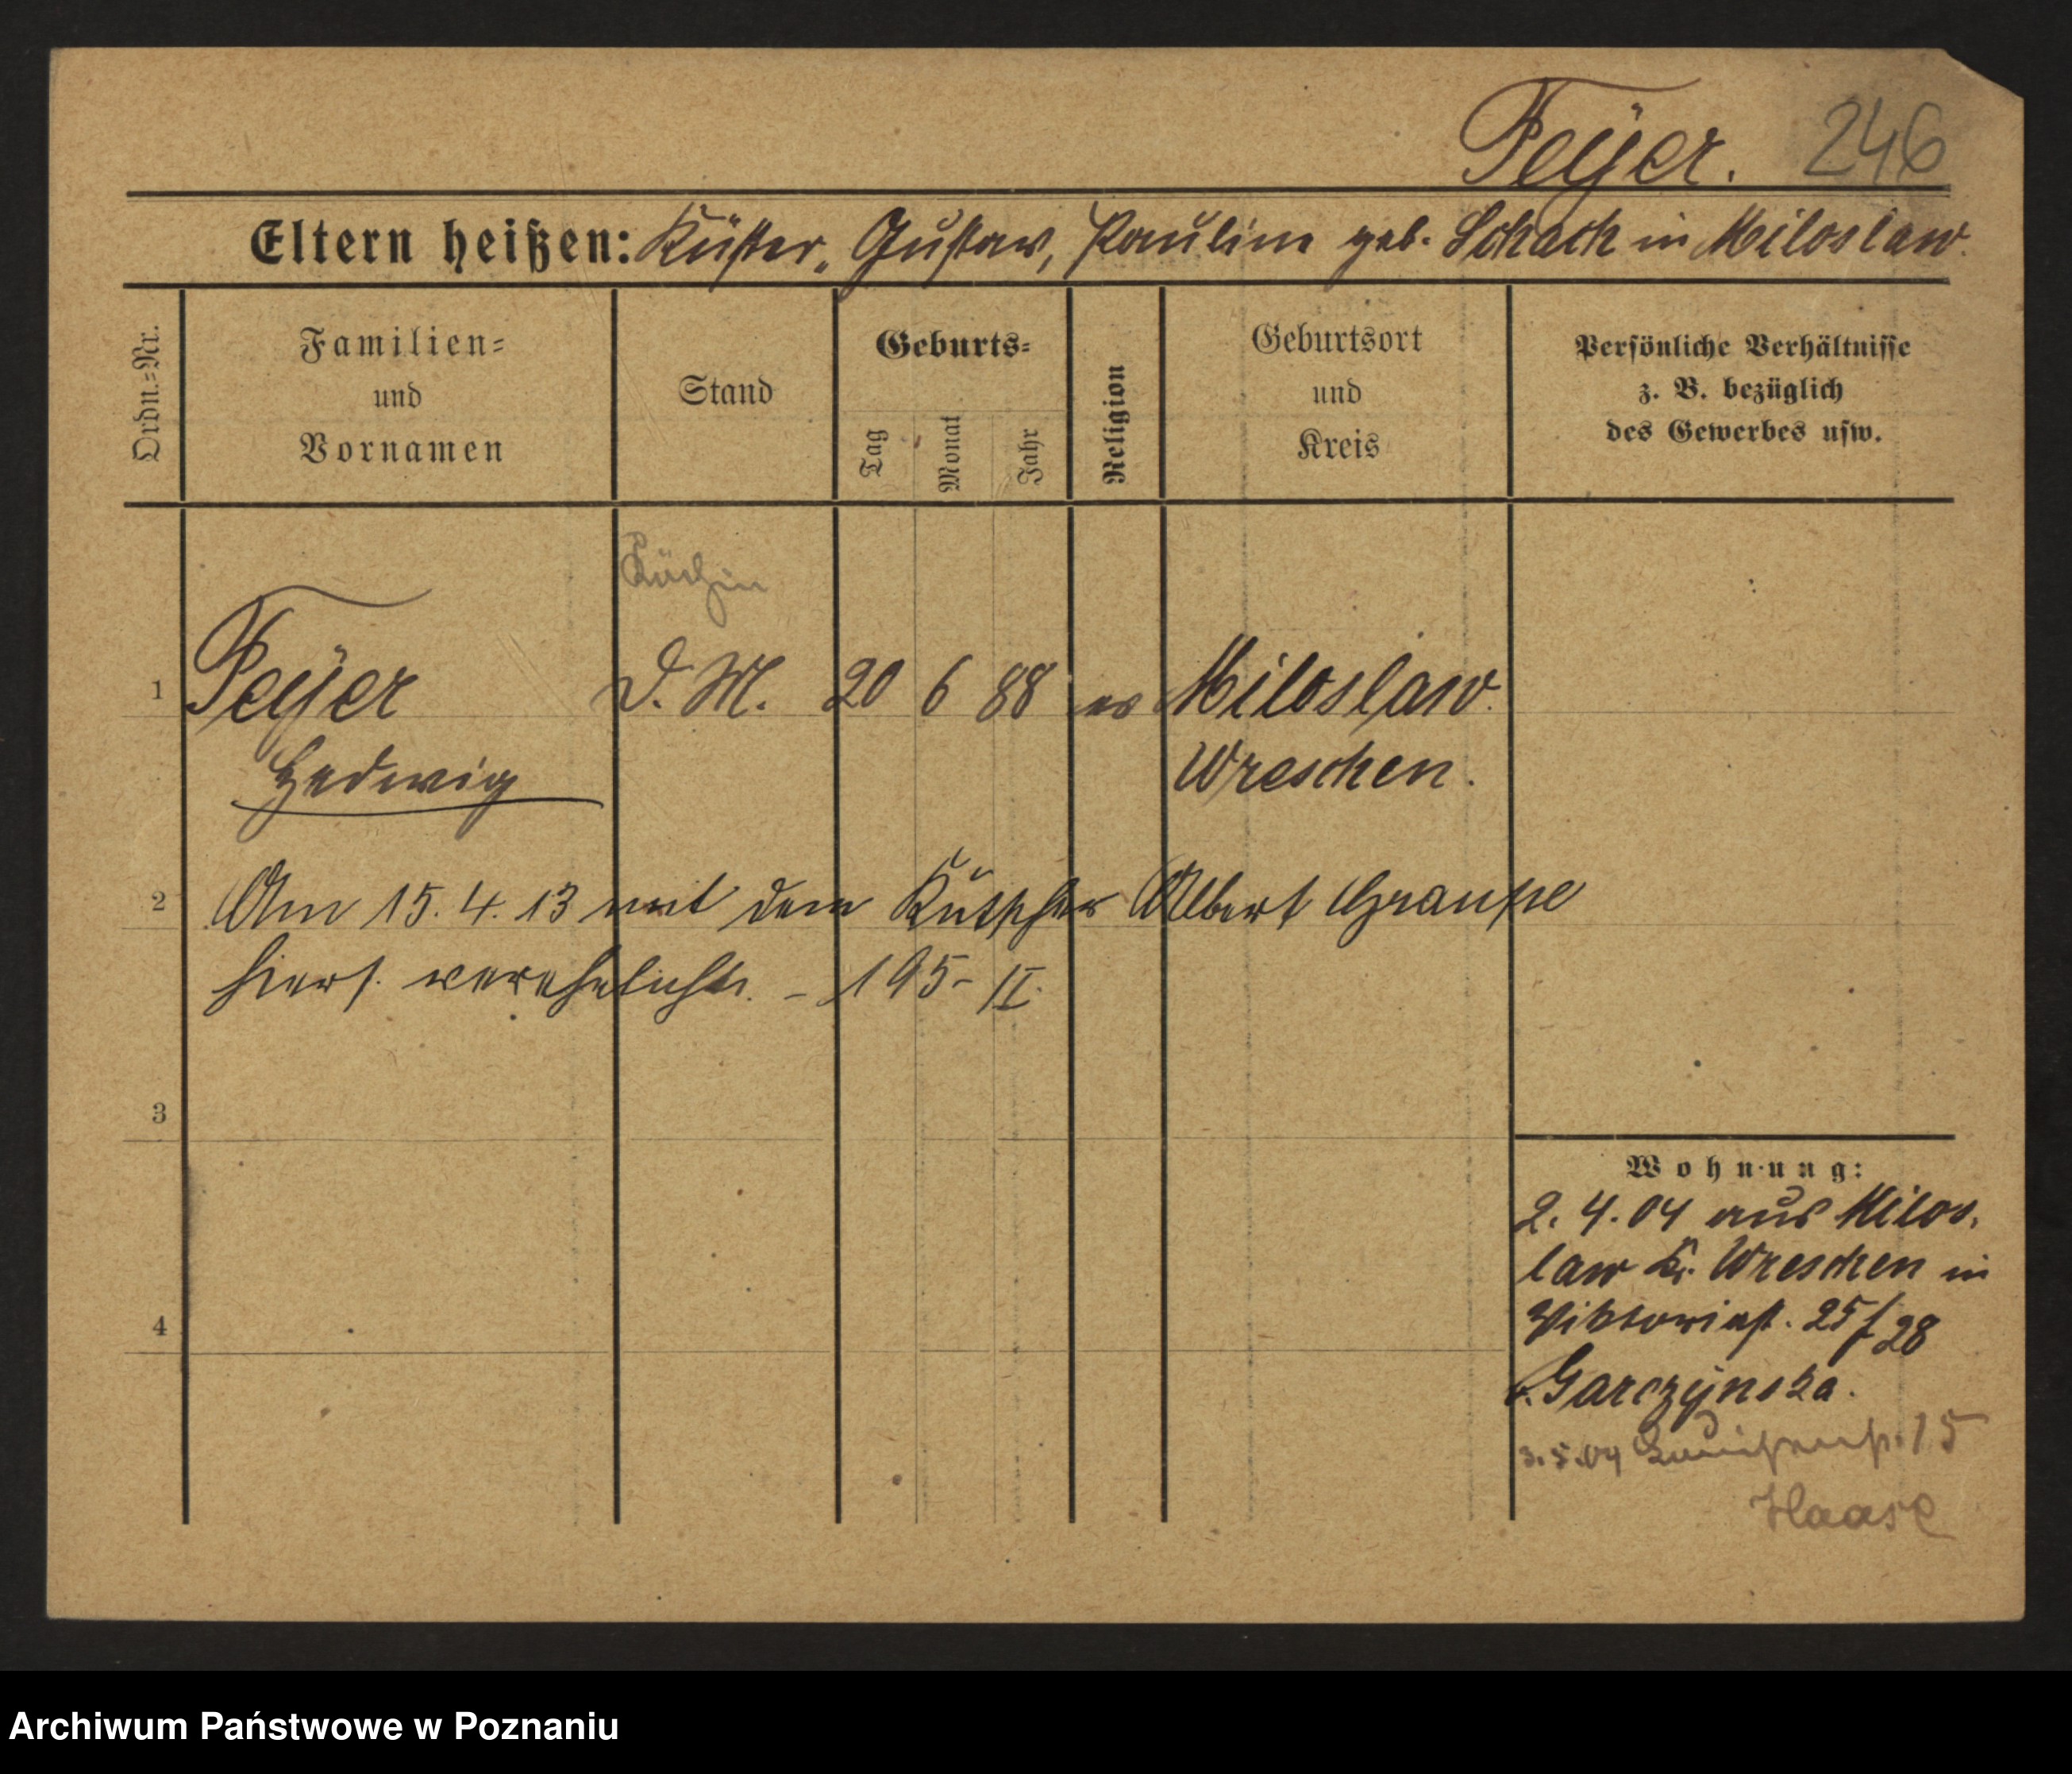 Feÿer. 246
Eltern heißen: Küster, Gustav, Pauline geb. Schach in Miloslaw.
Ordn.=Nr.
Familien=
und
Vornamen
Stand
Geburts=
Tag
Monat
Jahr
Religion
Geburtsort
und
Kreis
Persönliche Verhältnisse
z. B. bezüglich
des Gewerbes usw.
Köchin
1 Feÿer D. M. 20 6 88 ev Miloslaw.
Hedwig Wreschen.
2 Am 15. 4. 13 mit dem Kutscher Albert Graupe
hiers. verehelicht. – 195 – II.
3
4
Wohnung:
2. 4. 04 aus Milos.
law Kr. Wreschen in
Viktoriast. 25/28
b. Garczÿnska.
3. 5. 04 Louisenst. 15
Haase
Archiwum Państwowe w Poznaniu